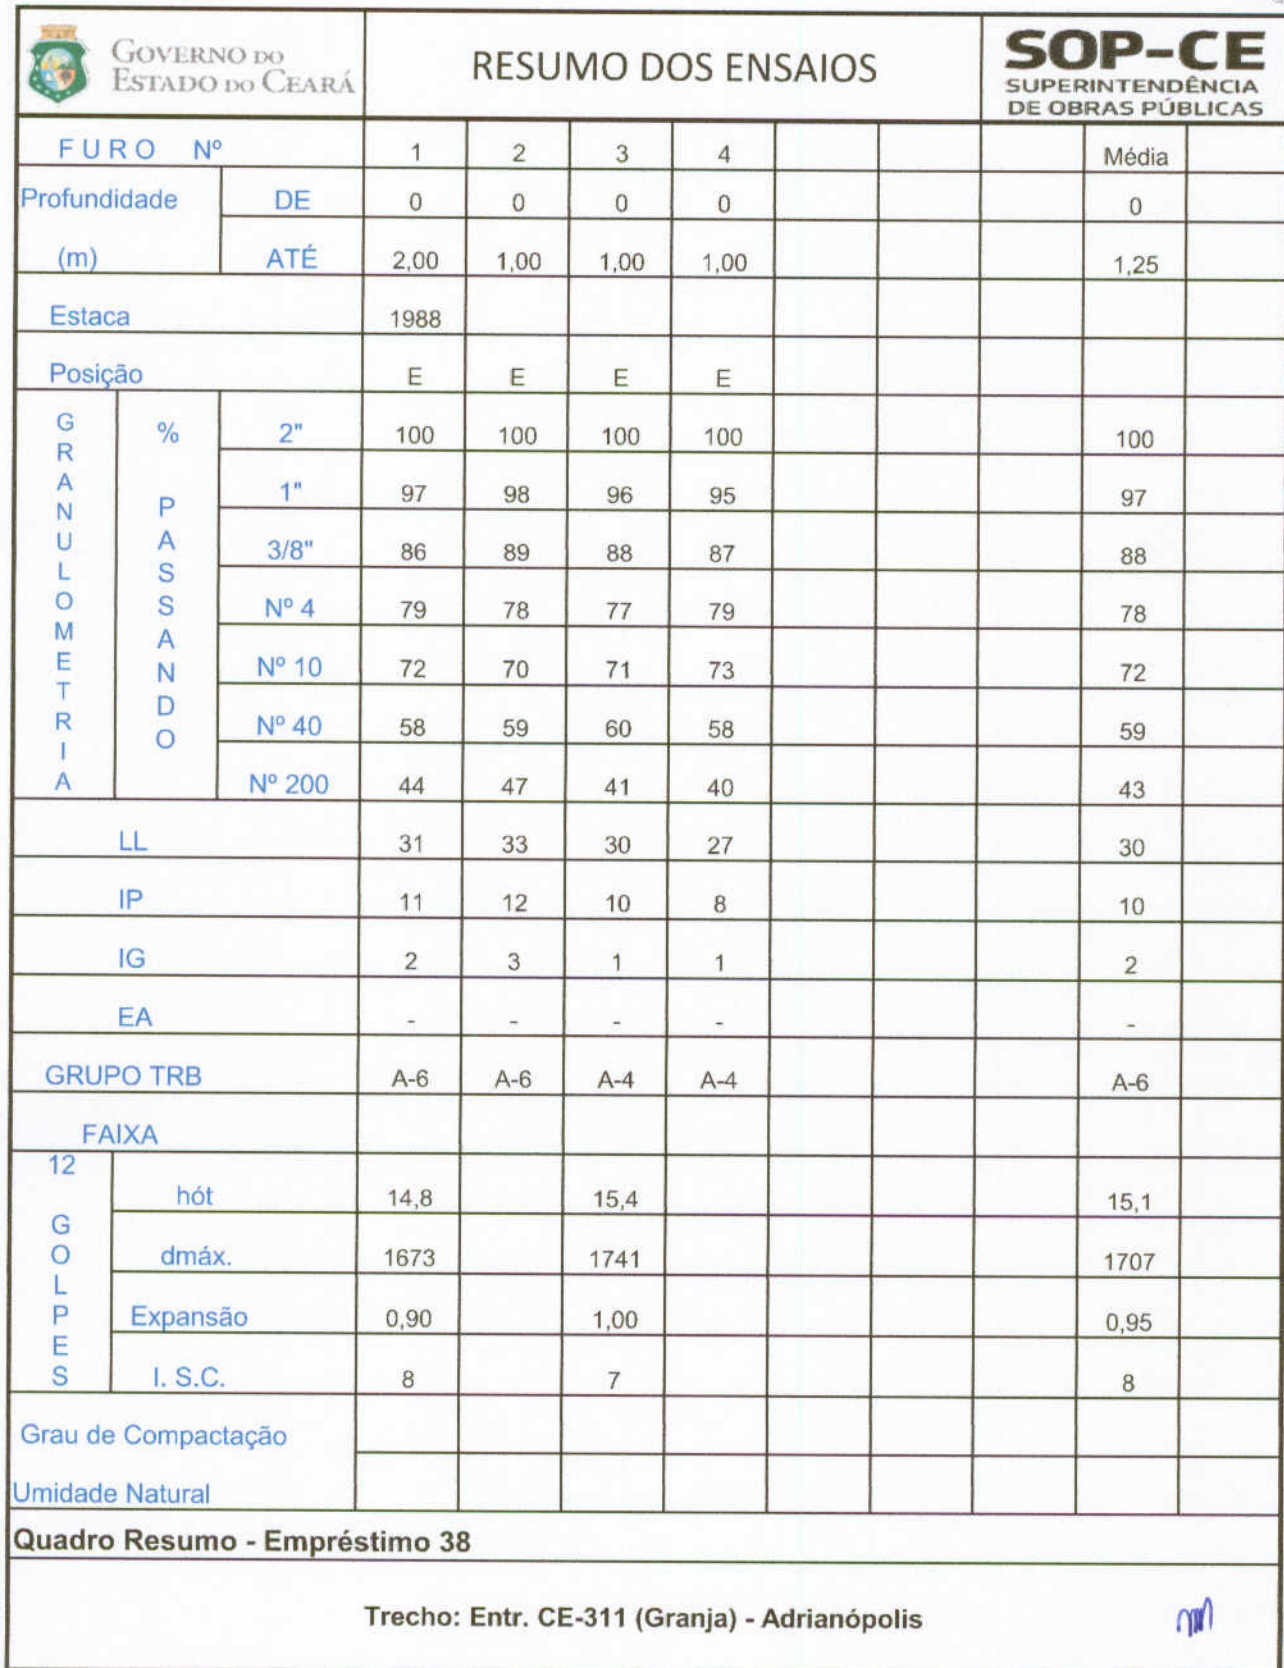 GOVERNO DO
ESTADO DO CEARÁ
RESUMO DOS ENSAIOS
SOP-CE
SUPERINTENDÊNCIA
DE OBRAS PÚBLICAS
FURO Nº 1 2 3 4 Média
Profundidade DE 0 0 0 0 0
(m) ATÉ 2,00 1,00 1,00 1,00 1,25
Estaca 1988
Posição E E E E
GRANULOMETRIA
% PASSANDO
2" 100 100 100 100 100
1" 97 98 96 95 97
3/8" 86 89 88 87 88
Nº 4 79 78 77 79 78
Nº 10 72 70 71 73 72
Nº 40 58 59 60 58 59
Nº 200 44 47 41 40 43
LL 31 33 30 27 30
IP 11 12 10 8 10
IG 2 3 1 1 2
EA - - - - -
GRUPO TRB A-6 A-6 A-4 A-4 A-6
FAIXA
12 GOLPES
hót 14,8 15,4 15,1
dmáx. 1673 1741 1707
Expansão 0,90 1,00 0,95
I. S.C. 8 7 8
Grau de Compactação
Umidade Natural
Quadro Resumo - Empréstimo 38
Trecho: Entr. CE-311 (Granja) - Adrianópolis